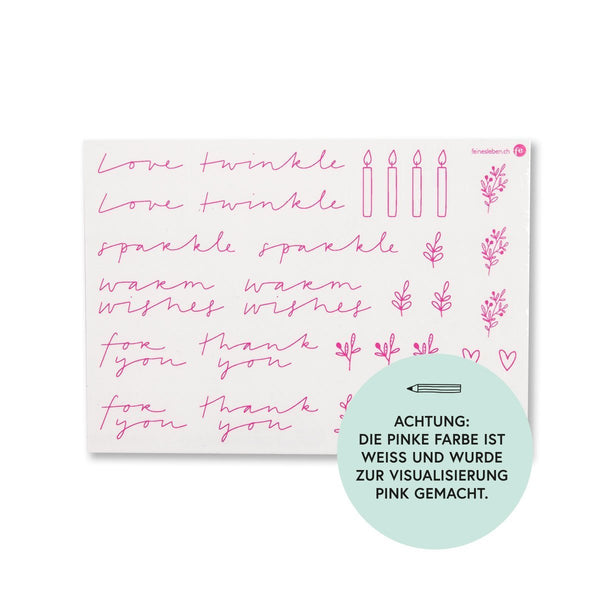 feinesleben.ch fe
love twinkle
love twinkle
sparkle sparkle
warm wishes warm wishes
for you thank you
for you thank you
ACHTUNG:
DIE PINKE FARBE IST
WEISS UND WURDE
ZUR VISUALISIERUNG
PINK GEMACHT.